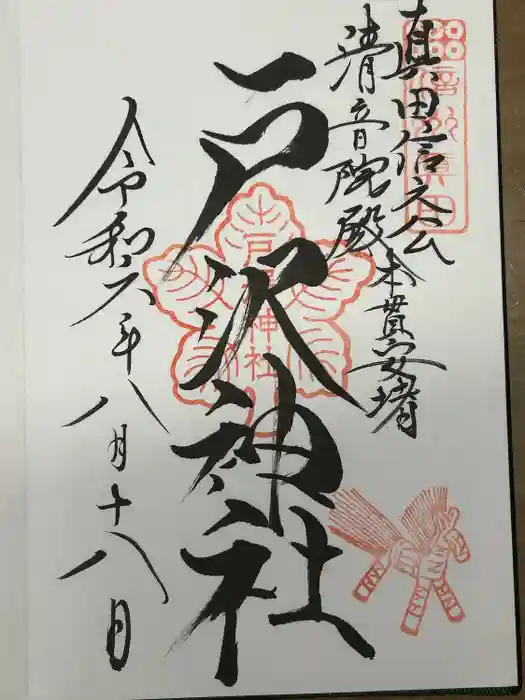 真田信之公
清音院殿
本貫安堵
信州眞田
戸沢神社
令和六年八月十八日